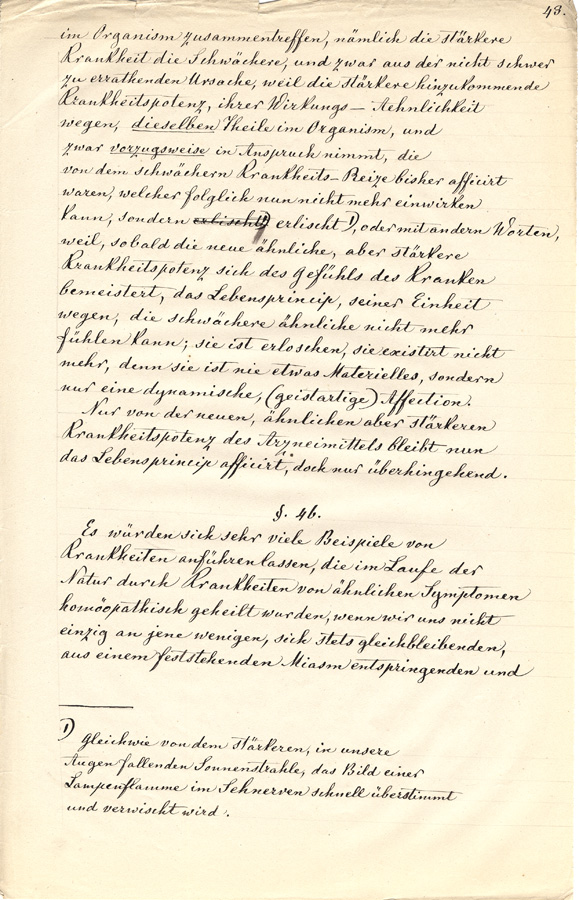 43.
im Organism zusammentreffen, nämlich die stärkere
Krankheit die Schwächere, und zwar aus der nicht schwer
zu errathenden Ursache, weil die stärkere hinzukommende
Krankheitspotenz, ihrer Wirkungs- Aehnlichkeit
wegen, dieselben Theile im Organism, und
zwar vorzugsweise in Anspruch nimmt, die
von dem schwächern Krankheits-Reize bisher afficirt
waren, welcher folglich nun nicht mehr einwirken
kann, sondern erlischt 1) erlischt 1), oder mit andern Worten,
weil, sobald die neue ähnliche, aber stärkere
Krankheitspotenz sich des Gefühls des Kranken
bemeistert, das Lebensprincip, seiner Einheit
wegen, die schwächere ähnliche nicht mehr
fühlen kann; sie ist erloschen, sie existirt nicht
mehr, denn sie ist nie etwas Materielles, sondern
nur eine dynamische, (geistartige) Affection.
Nur von der neuen, ähnlichen aber stärkeren
Krankheitspotenz des Arzneimittels bleibt nun
das Lebensprincip afficirt, doch nur überhingehend.
§. 46.
Es würden sich sehr viele Beispiele von
Krankheiten anführen lassen, die im Laufe der
Natur durch Krankheiten von ähnlichen Symptomen
homöopathisch geheilt wurden, wenn wir uns nicht
einzig an jene wenigen, sich stets gleichbleibenden,
aus einem feststehenden Miasm entspringenden und
1) Gleichwie von dem stärkeren, in unsere
Augen fallenden Sonnenstrahle, das Bild einer
Lampenflamme im Sehnerven schnell überstimmt
und verwischt wird.